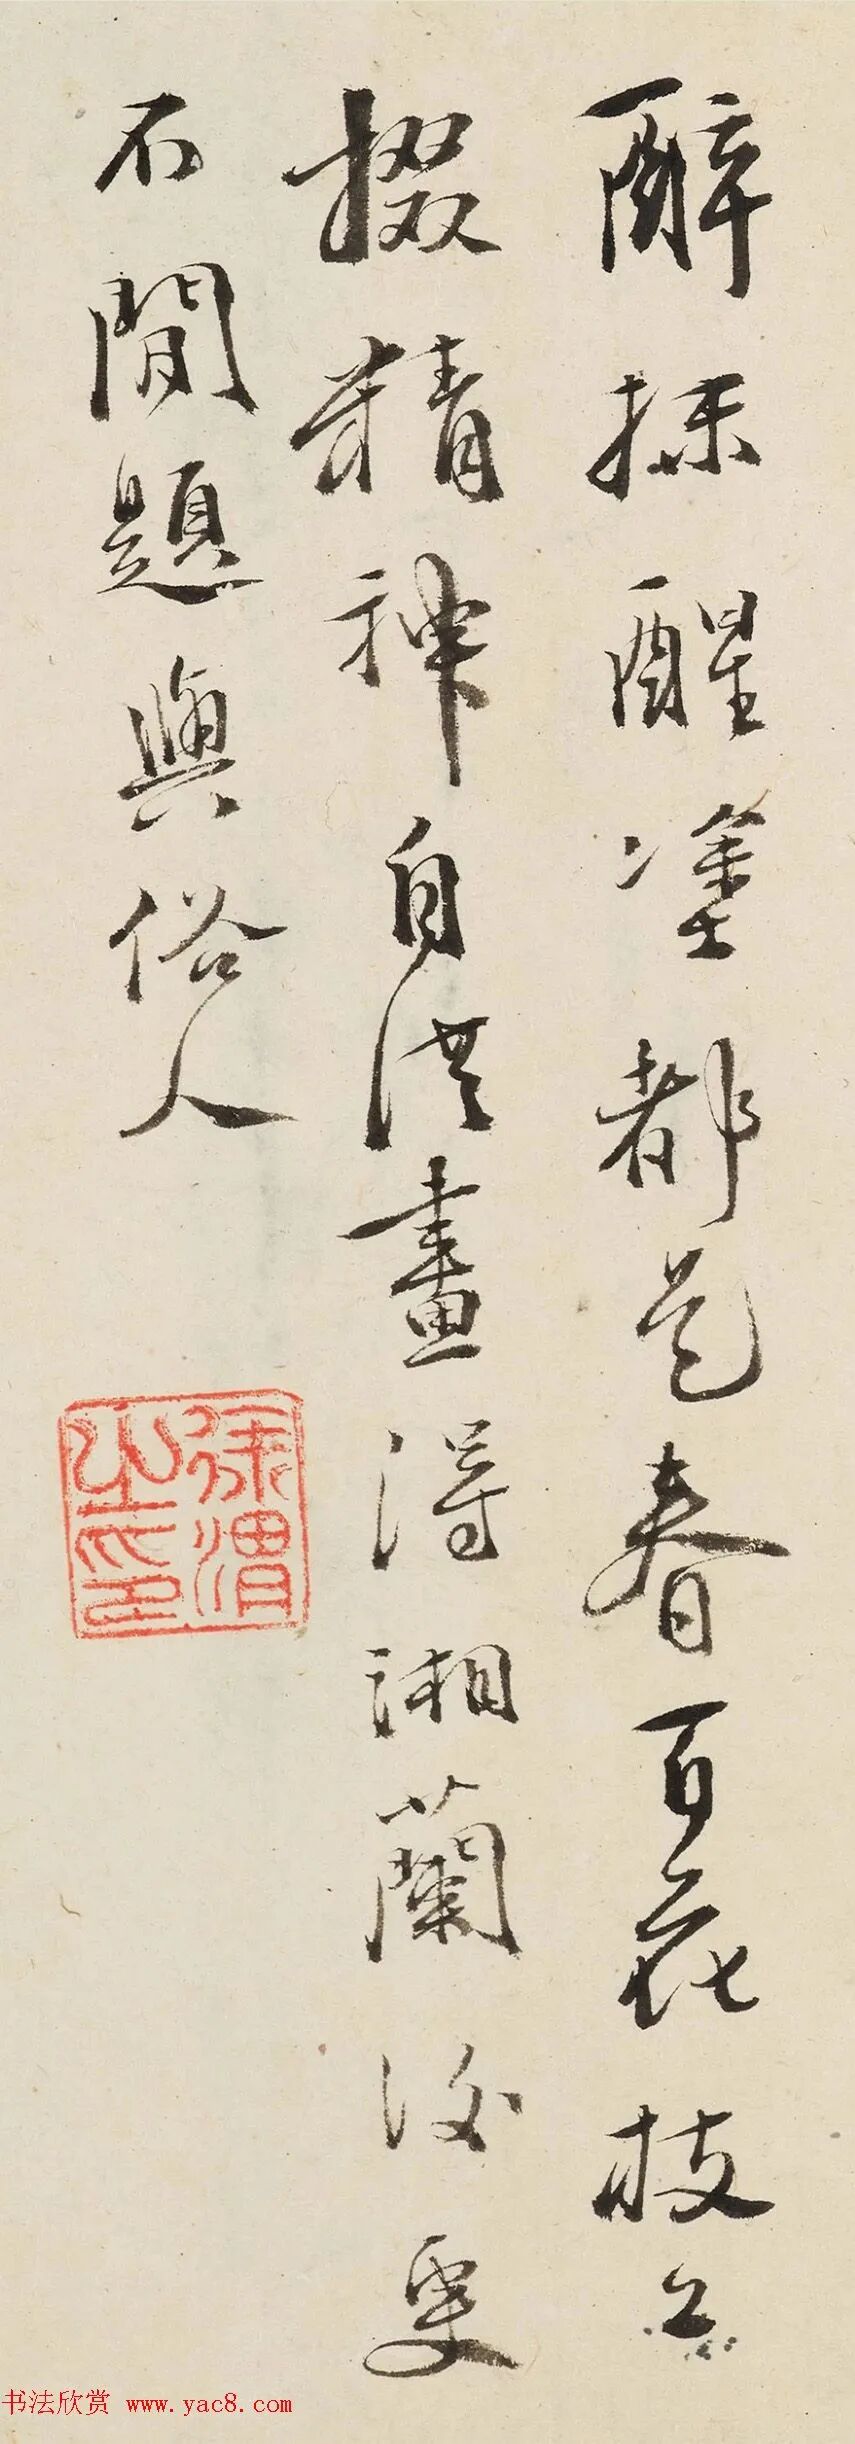 醉抹醒塗都是春百花枝上
掇精神自從畫得湘蘭後更
不閒題與俗人
徐渭之印
书法欣赏 www.yac8.com